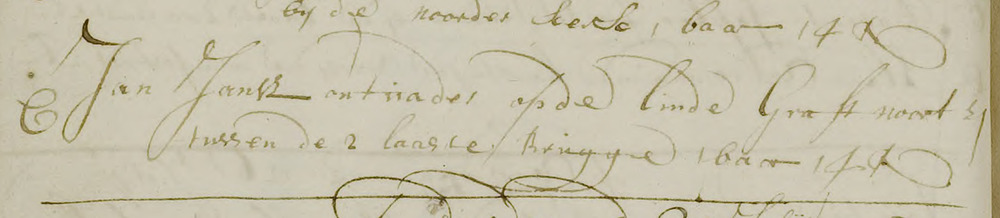 by de noorder kerk 1 baar 14 k
Jan Jansz ontijader op de linde Graft noort zy
tussen de 2 laaste Brugge 1 baar 14 k